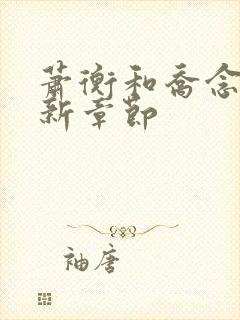 萧衡和乔念
新章节
袖唐